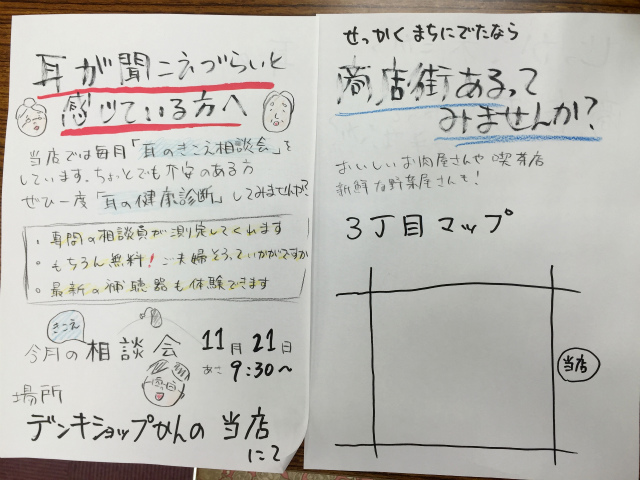 耳が聞こえづらいと
感じている方へ
当店では毎月「耳のきこえ相談会」を
しています。ちょっとでも不安のある方
ぜひ一度「耳の健康診断」してみませんか?
・専門の相談員が測定してくれます
・もちろん無料! ご夫婦そろっていかがですか
・最新の補聴器も体験できます
きこえ
今月の相談会 11月21日
あさ 9:30〜
場所
デンキショップかんの 当店
にて
せっかく まちにでたなら
商店街あるって
みませんか?
おいしいお肉屋さんや 喫茶店
新鮮な野菜屋さんも!
3丁目マップ
当店